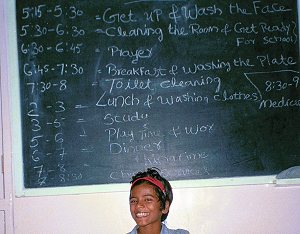 5:15-5:30 = Get up & Wash the Face
5:30-6:30 = Cleaning the Room & Get Ready
For school
6:30-6:45 = Prayer
6:45-7:30 = Breakfast & Washing the Plate
7:30-8 = Toilet cleaning
8:30-9
2-3 = Lunch & Washing clothes
3-5 = Study
Play Time & Wor
6-7 = Dinner
7-8
8-8:30